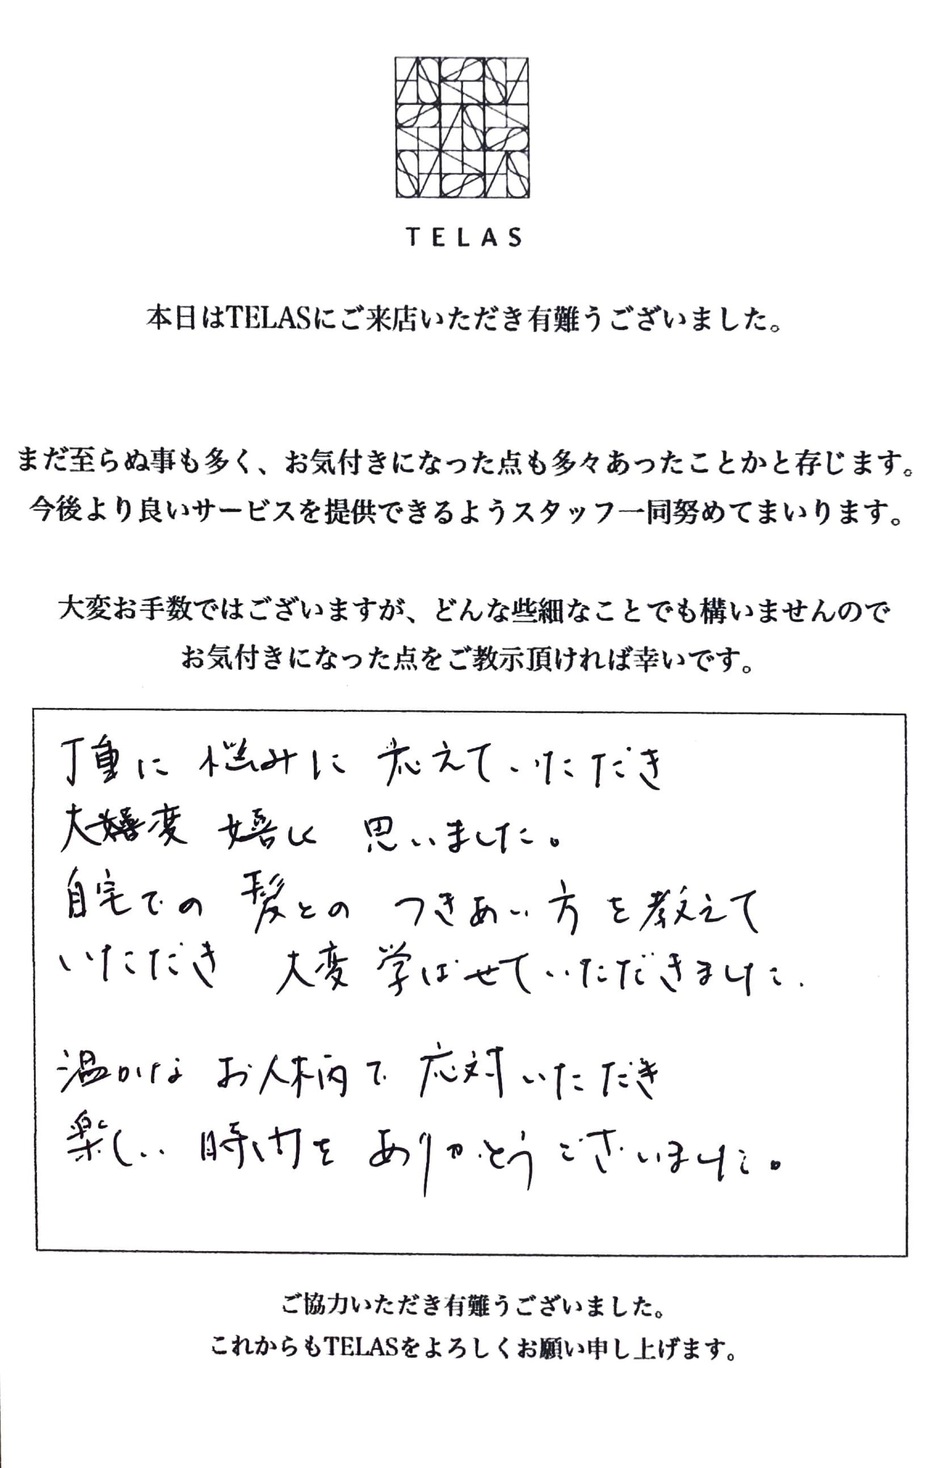 TELAS
本日はTELASにご来店いただき有難うございました。
まだ至らぬ事も多く、お気付きになった点も多々あったことかと存じます。
今後より良いサービスを提供できるようスタッフ一同努めてまいります。
大変お手数ではございますが、どんな些細なことでも構いませんので
お気付きになった点をご教示頂ければ幸いです。
丁重に 悩みに 応えていただき
大変 嬉しく 思いました。
自宅での 髪との つきあい方を教えて
いただき 大変 学ばせていただきました.
温かな お人柄で 応対いただき
楽しい 時間を ありがとうございました。
ご協力いただき有難うございました。
これからもTELASをよろしくお願い申し上げます。